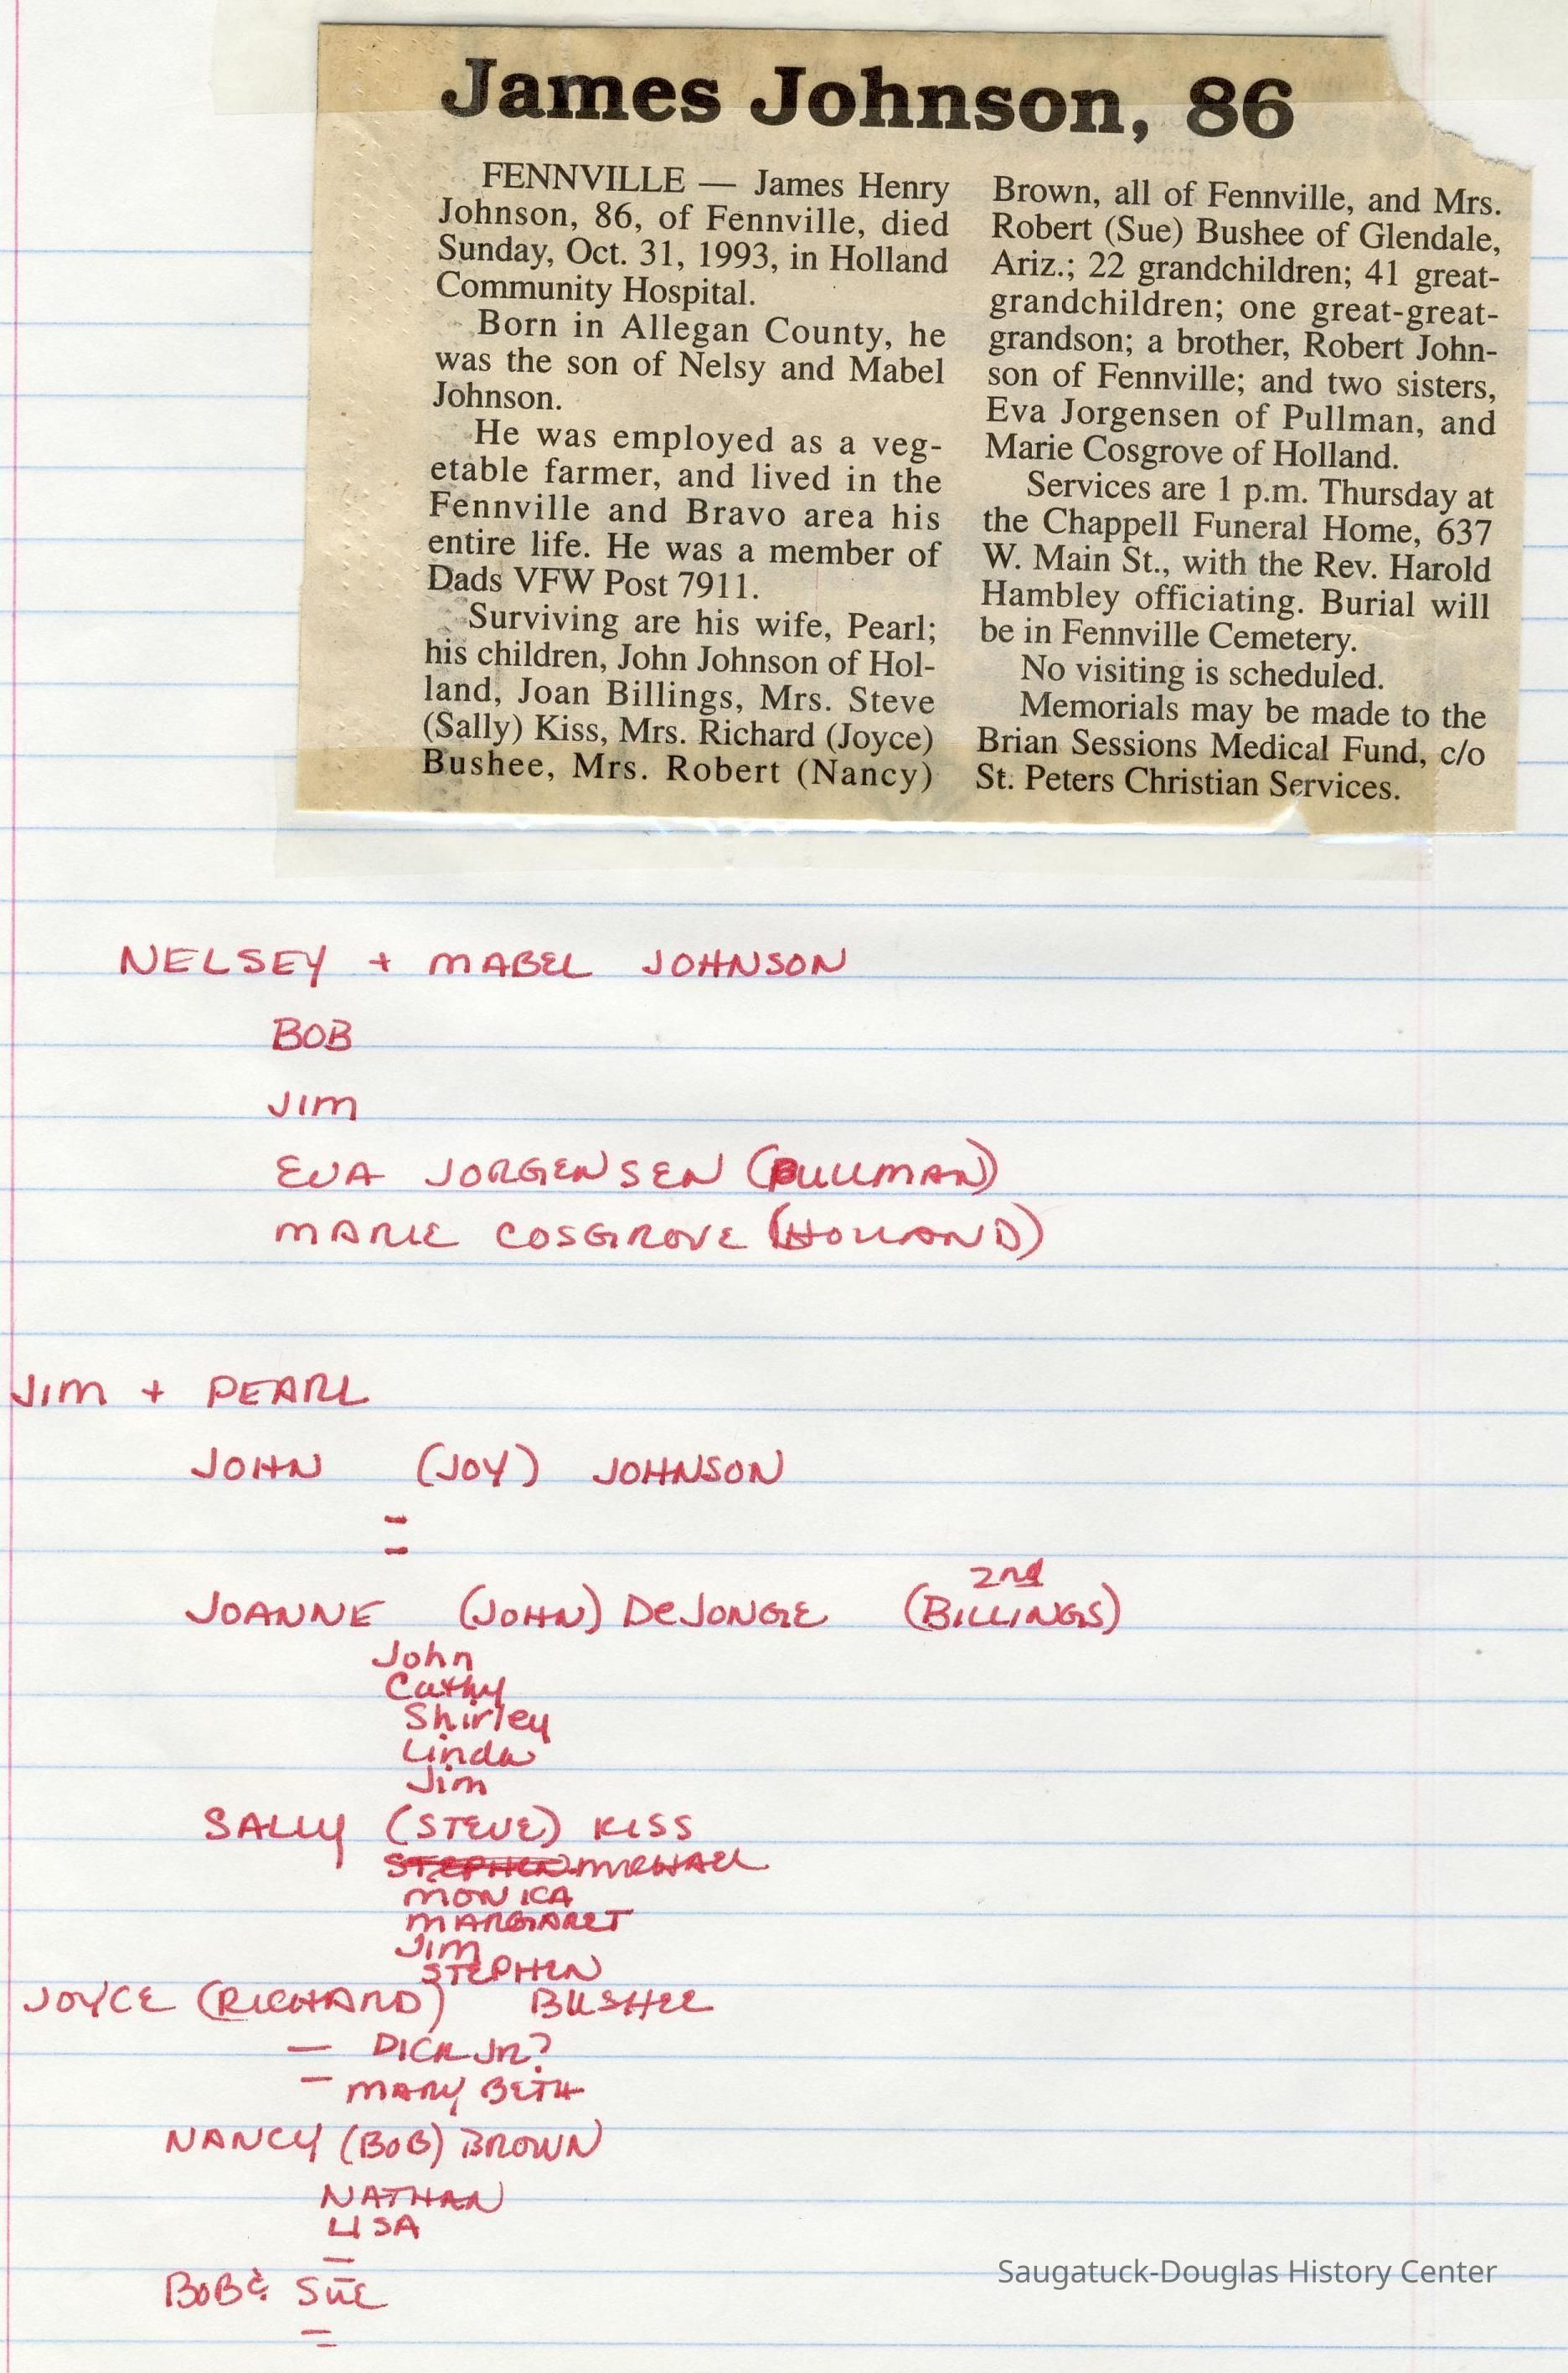 James Johnson, 86
FENNVILLE — James Henry
Johnson, 86, of Fennville, died
Sunday, Oct. 31, 1993, in Holland
Community Hospital.
Born in Allegan County, he
was the son of Nelsy and Mabel
Johnson.
He was employed as a veg-
etable farmer, and lived in the
Fennville and Bravo area his
entire life. He was a member of
Dads VFW Post 7911.
Surviving are his wife, Pearl;
his children, John Johnson of Hol-
land, Joan Billings, Mrs. Steve
(Sally) Kiss, Mrs. Richard (Joyce)
Bushee, Mrs. Robert (Nancy)
Brown, all of Fennville, and Mrs.
Robert (Sue) Bushee of Glendale,
Ariz.; 22 grandchildren; 41 great-
grandchildren; one great-great-
grandson; a brother, Robert John-
son of Fennville; and two sisters,
Eva Jorgensen of Pullman, and
Marie Cosgrove of Holland.
Services are 1 p.m. Thursday at
the Chappell Funeral Home, 637
W. Main St., with the Rev. Harold
Hambley officiating. Burial will
be in Fennville Cemetery.
No visiting is scheduled.
Memorials may be made to the
Brian Sessions Medical Fund, c/o
St. Peters Christian Services.
NELSEY + MABEL JOHNSON
BOB
JIM
EVA JORGENSEN (PULLMAN)
MARIE COSGROVE (HOLLAND)
JIM + PEARL
JOHN (JOY) JOHNSON
-
-
2nd
JOANNE (JOHN) DeJONGE (BILLINGS)
John
Cathy
Shirley
Linda
Jim
SALLY (STEVE) KISS
STEPHEN MICHAEL
MONICA
MARGARET
JIM
STEPHEN
JOYCE (RICHARD) BUSHEE
— DICK JR?
— MARY BETH
NANCY (BOB) BROWN
NATHAN
LISA
—
BOB & SUE
—
—
Saugatuck-Douglas History Center